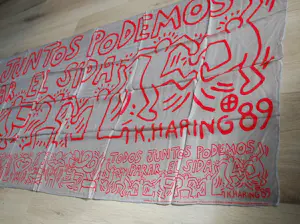 JUNTOS PODEMOS
EL SIDA
K HARING 89
TODOS JUNTOS PODEMOS
PARAR EL SIDA
K.HARING 89